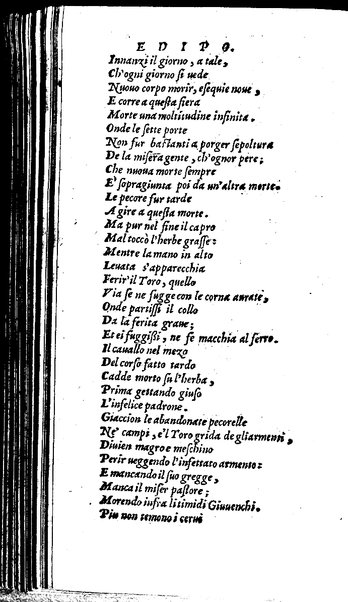 EDIPO.
Innanzi il giorno, a tale,
Ch'ogni giorno si uede
Nuouo corpo morir, esequie noue,
E corre a questa fiera
Morte una moltitudine infinita.
Onde le sette porte
Non fur bastanti a porger sepoltura
De la misera gente, ch'ognor pere;
Che nuoua morte sempre
E' sopragiunta poi da un'altra morte.
Le pecore fur tarde
A gire a questa morte.
Ma pur nel fine il capro
Mal toccò l'herbe grasse:
Mentre la mano in alto
Leuata s'apparecchia
Ferir'il Toro, quello
Via se ne fugge con le corna aurate,
Onde partissi il collo
Da la ferita graue;
Et ei fuggissi, ne se macchia al ferro.
Il cauallo nel mezo
Del corso fatto tardo
Cadde morto su l'herba,
Prima gettando giuso
L'infelice padrone.
Giaccion le abandonate pecorelle
Ne' campi, e'l Toro grida de gli armenti,
Diuien magro e meschino
Perir ueggendo l'infettato armento:
E mancando il suo gregge,
Manca il miser pastore;
Morendo infra li timidi Giuuenchi.
Piu non temono i cerui